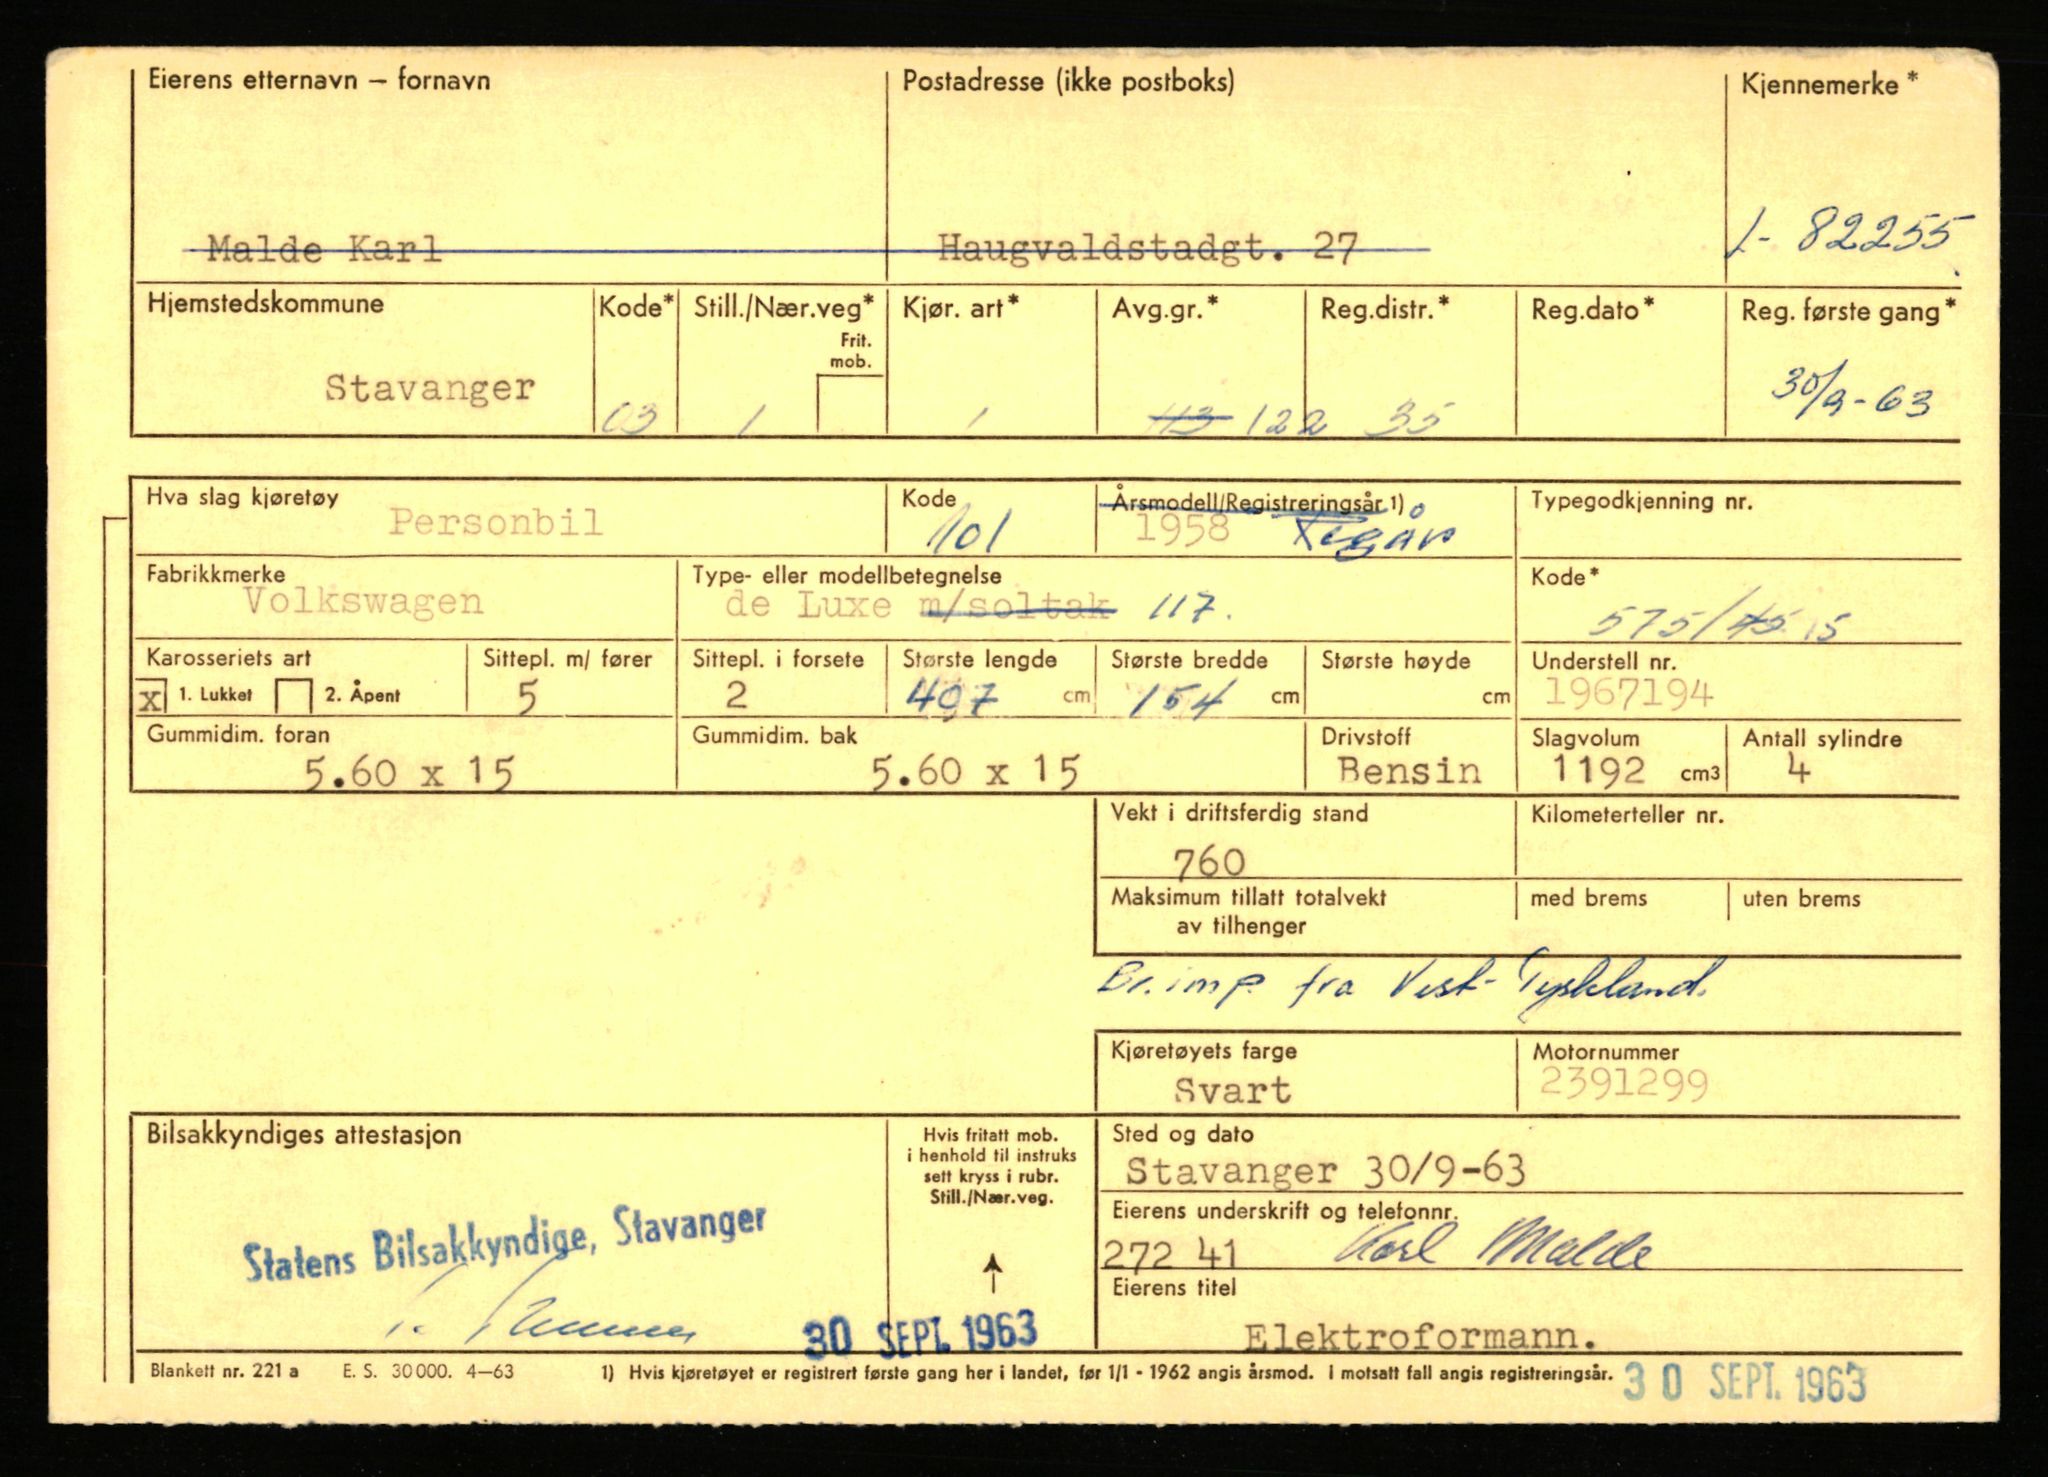 Eierens etternavn – fornavn
Postadresse (ikke postboks)
Kjennemerke*
Malde Karl
Haugvaldstadgt. 27
L- 82255
Hjemstedskommune
Kode*
Still./Nær.veg*
Frit.
mob.
Kjør. art*
Avg.gr.*
Reg.distr.*
Reg.dato*
Reg. første gang*
Stavanger
03
1
1
113 122
35
30/9-63
Hva slag kjøretøy
Personbil
Kode
101
Årsmodell/Registreringsår 1)
1958 Regår
Typegodkjenning nr.
Fabrikkmerke
Volkswagen
Type- eller modellbetegnelse
de Luxe m/soltak 117.
Kode*
575/45 15
Karosseriets art
x 1. Lukket 2. Åpent
Sittepl. m/ fører
5
Sittepl. i forsete
2
Største lengde
407 cm
Største bredde
154 cm
Største høyde
cm
Understell nr.
1967194
Gummidim. foran
5.60 x 15
Gummidim. bak
5.60 x 15
Drivstoff
Bensin
Slagvolum
1192 cm3
Antall sylindre
4
Vekt i driftsferdig stand
760
Kilometerteller nr.
Maksimum tillatt totalvekt
av tilhenger
med brems
uten brems
Br. imp fra Vest-Tyskland.
Kjøretøyets farge
Svart
Motornummer
2391299
Bilsakkyndiges attestasjon
Statens Bilsakkyndige, Stavanger
30 SEPT. 1963
Hvis fritatt mob.
i henhold til instruks
sett kryss i rubr.
Still./Nær.veg.
Sted og dato
Stavanger 30/9-63
Eierens underskrift og telefonnr.
272 41 Karl Malde
Eierens titel
Elektroformann.
Blankett nr. 221 a E. S. 30 000. 4—63
1) Hvis kjøretøyet er registrert første gang her i landet, før 1/1 - 1962 angis årsmod. I motsatt fall angis registreringsår.
30 SEPT. 1963